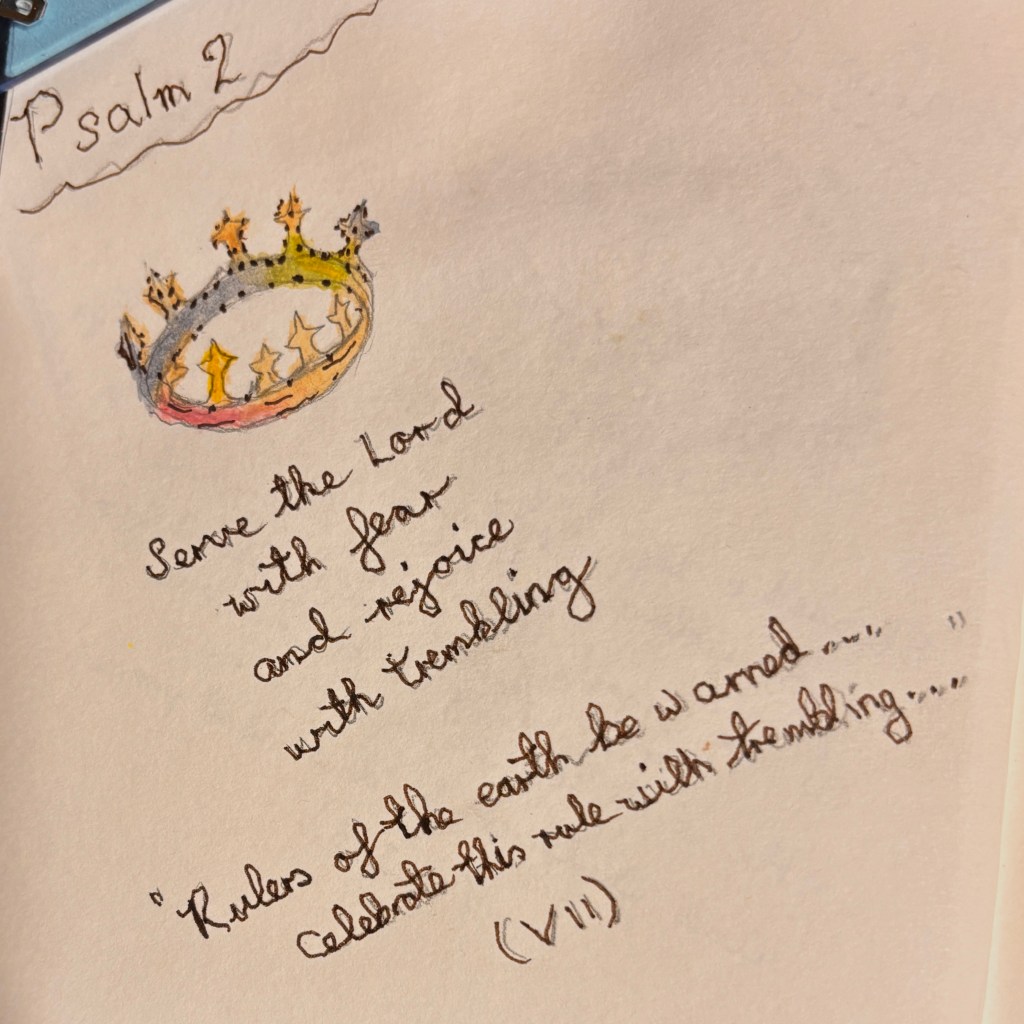 Psalm 2
Serve the Lord
with fear
and rejoice
with trembling
"Rulers of the earth be warned...."
celebrate this rule with trembling....
(VII)